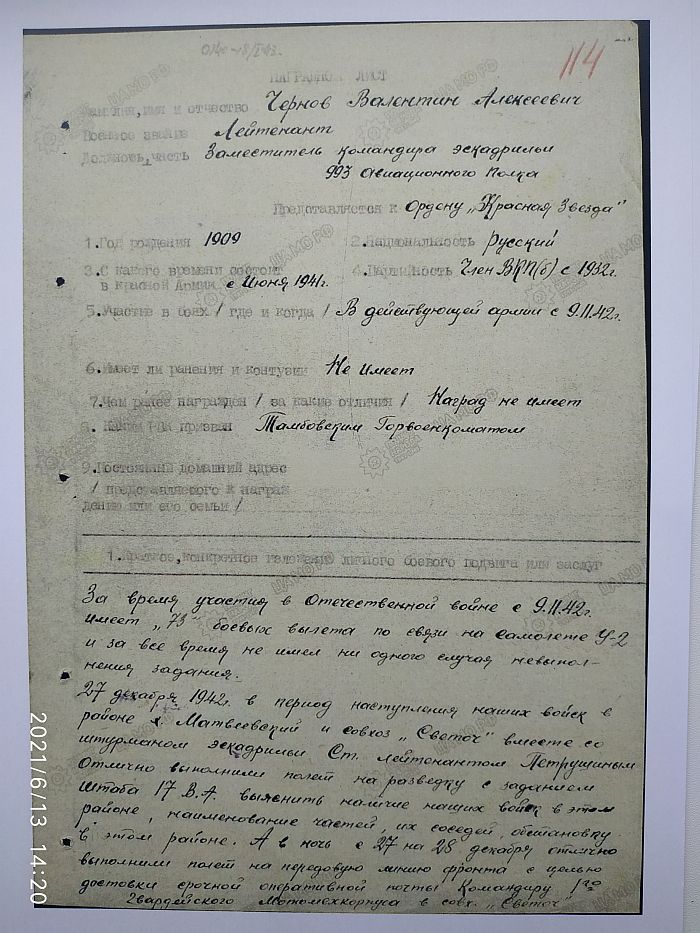 114
НАГРАДНОЙ ЛИСТ
Фамилия, имя и отчество Чернов Валентин Алексеевич
Военное звание Лейтенант
Должность, часть Заместитель командира эскадрильи
993 Авиационного полка
Представляется к Ордену „Красная Звезда"
1. Год рождения 1909 2. Национальность Русский
3. С какого времени состоит в Красной Армии с Июня 1941г. 4. Партийность Член ВКП(б) с 1932г.
5. Участие в боях / где и когда / В действующей армии с 9.11.42г.
6. Имеет ли ранения и контузии Не имеет
7. Чем ранее награжден / за какие отличия / Наград не имеет
8. Каким РВК призван Тамбовским Горвоенкоматом
9. Постоянный домашний адрес
/ представляемого к награж
дению или его семьи /
1. Краткое, конкретное изложение личного боевого подвига или заслуг
За время участия в Отечественной войне с 9.11.42г.
имеет „73" боевых вылета по связи на самолете У-2
и за все время не имел ни одного случая невыпол-
нения задания.
27 декабря 1942г. в период наступления наших войск в
районе х. Матвеевский и совхоз „Светоч" вместе со
штурманом эскадрильи Ст. лейтенантом Петрушиным
Отлично выполнили полет на разведку с заданием
Штаба 17 В.А. выяснить наличие наших войск в этом
районе, наименование частей, их соседей, обстановку
в этом районе. А в ночь с 27 на 28 декабря отлично
выполнили полет на передовую линию фронта с целью
доставки срочной оперативной почты Командиру 1го
Гвардейского Мотомехкорпуса в совх. „Светоч"
2021/6/13 14:20